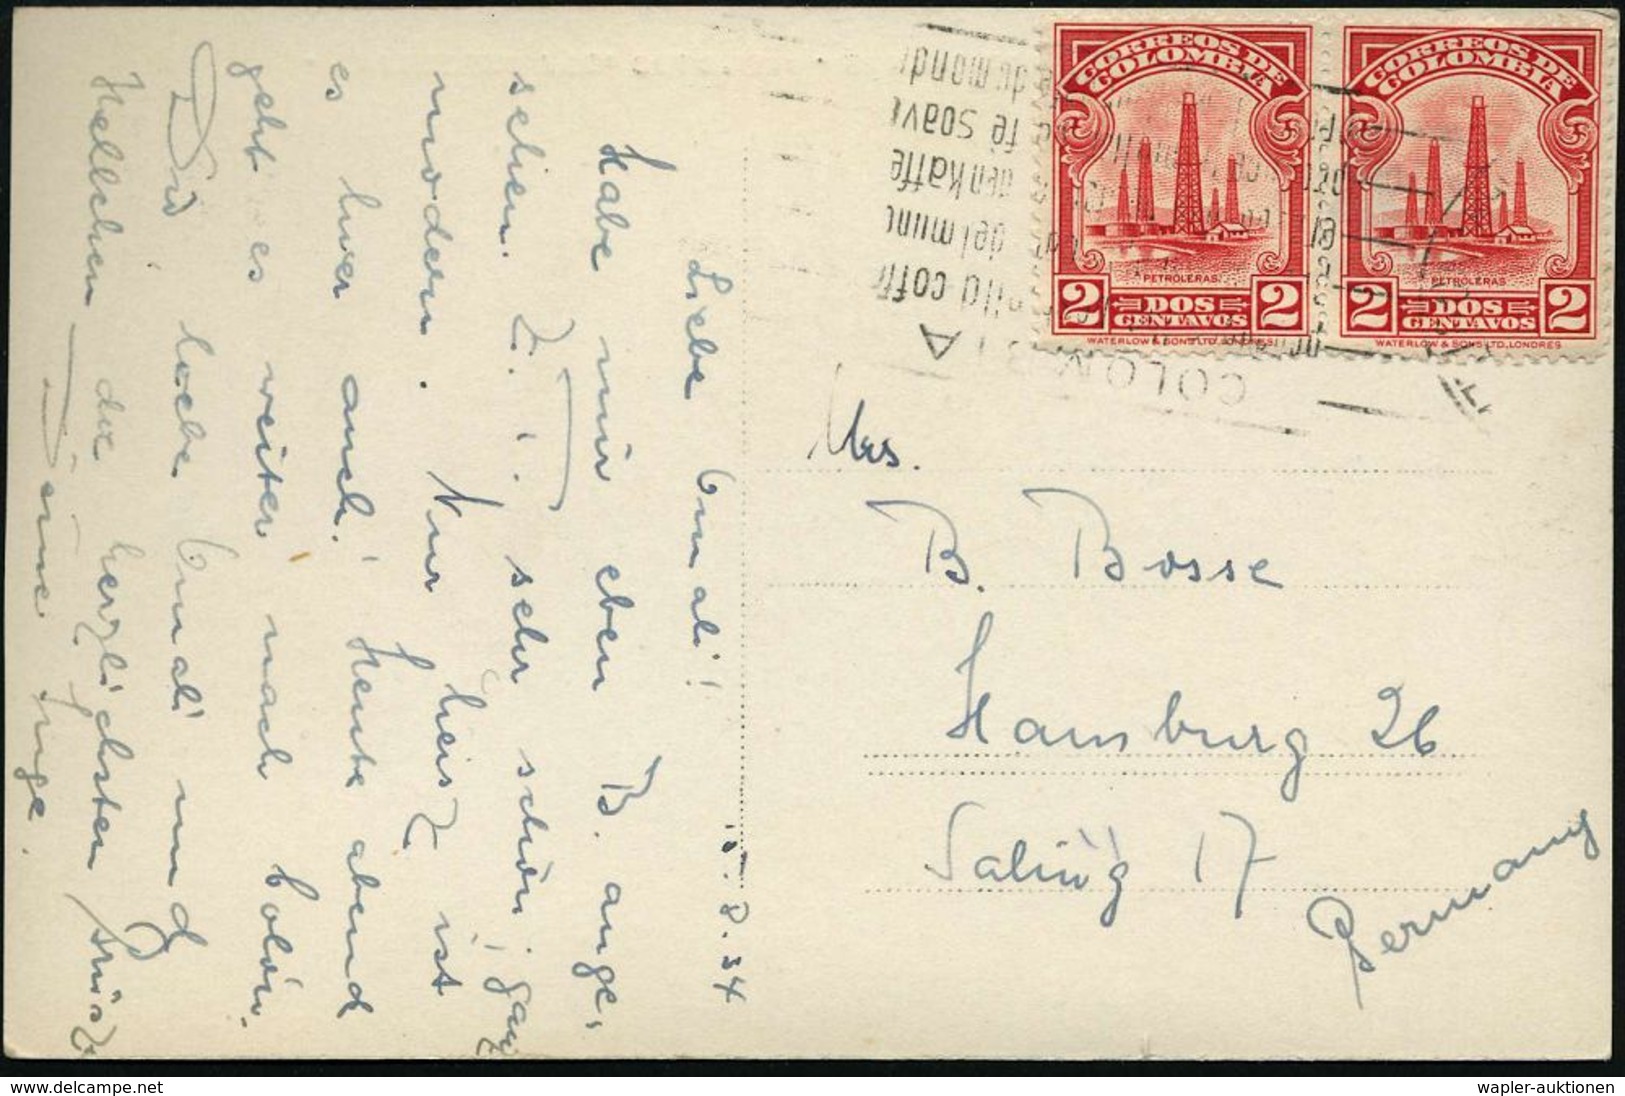 CORREOS DE COLOMBIA
PETROLERAS
2 DOS CENTAVOS 2
WATERLOW & SONS LTD.
CORREOS DE COLOMBIA
PETROLERAS
2 DOS CENTAVOS 2
WATERLOW & SONS LTD, LONDRES
COLOM
8.34
Liebe Omali!
Habe mir eben B. ange,
sehen. Z. T. sehr schön, ganz
modern. Nur heisz ist
es hier auch! Heute abend
geht es weiter nach Colón.
Dir liebe Omali und
Hellchen die herzlichsten Grüsze
Deine Inge.
Mrs.
B. Bosse
Hamburg 26
Saling 17
Germany
www.delcampe.net
wapler-auktionen